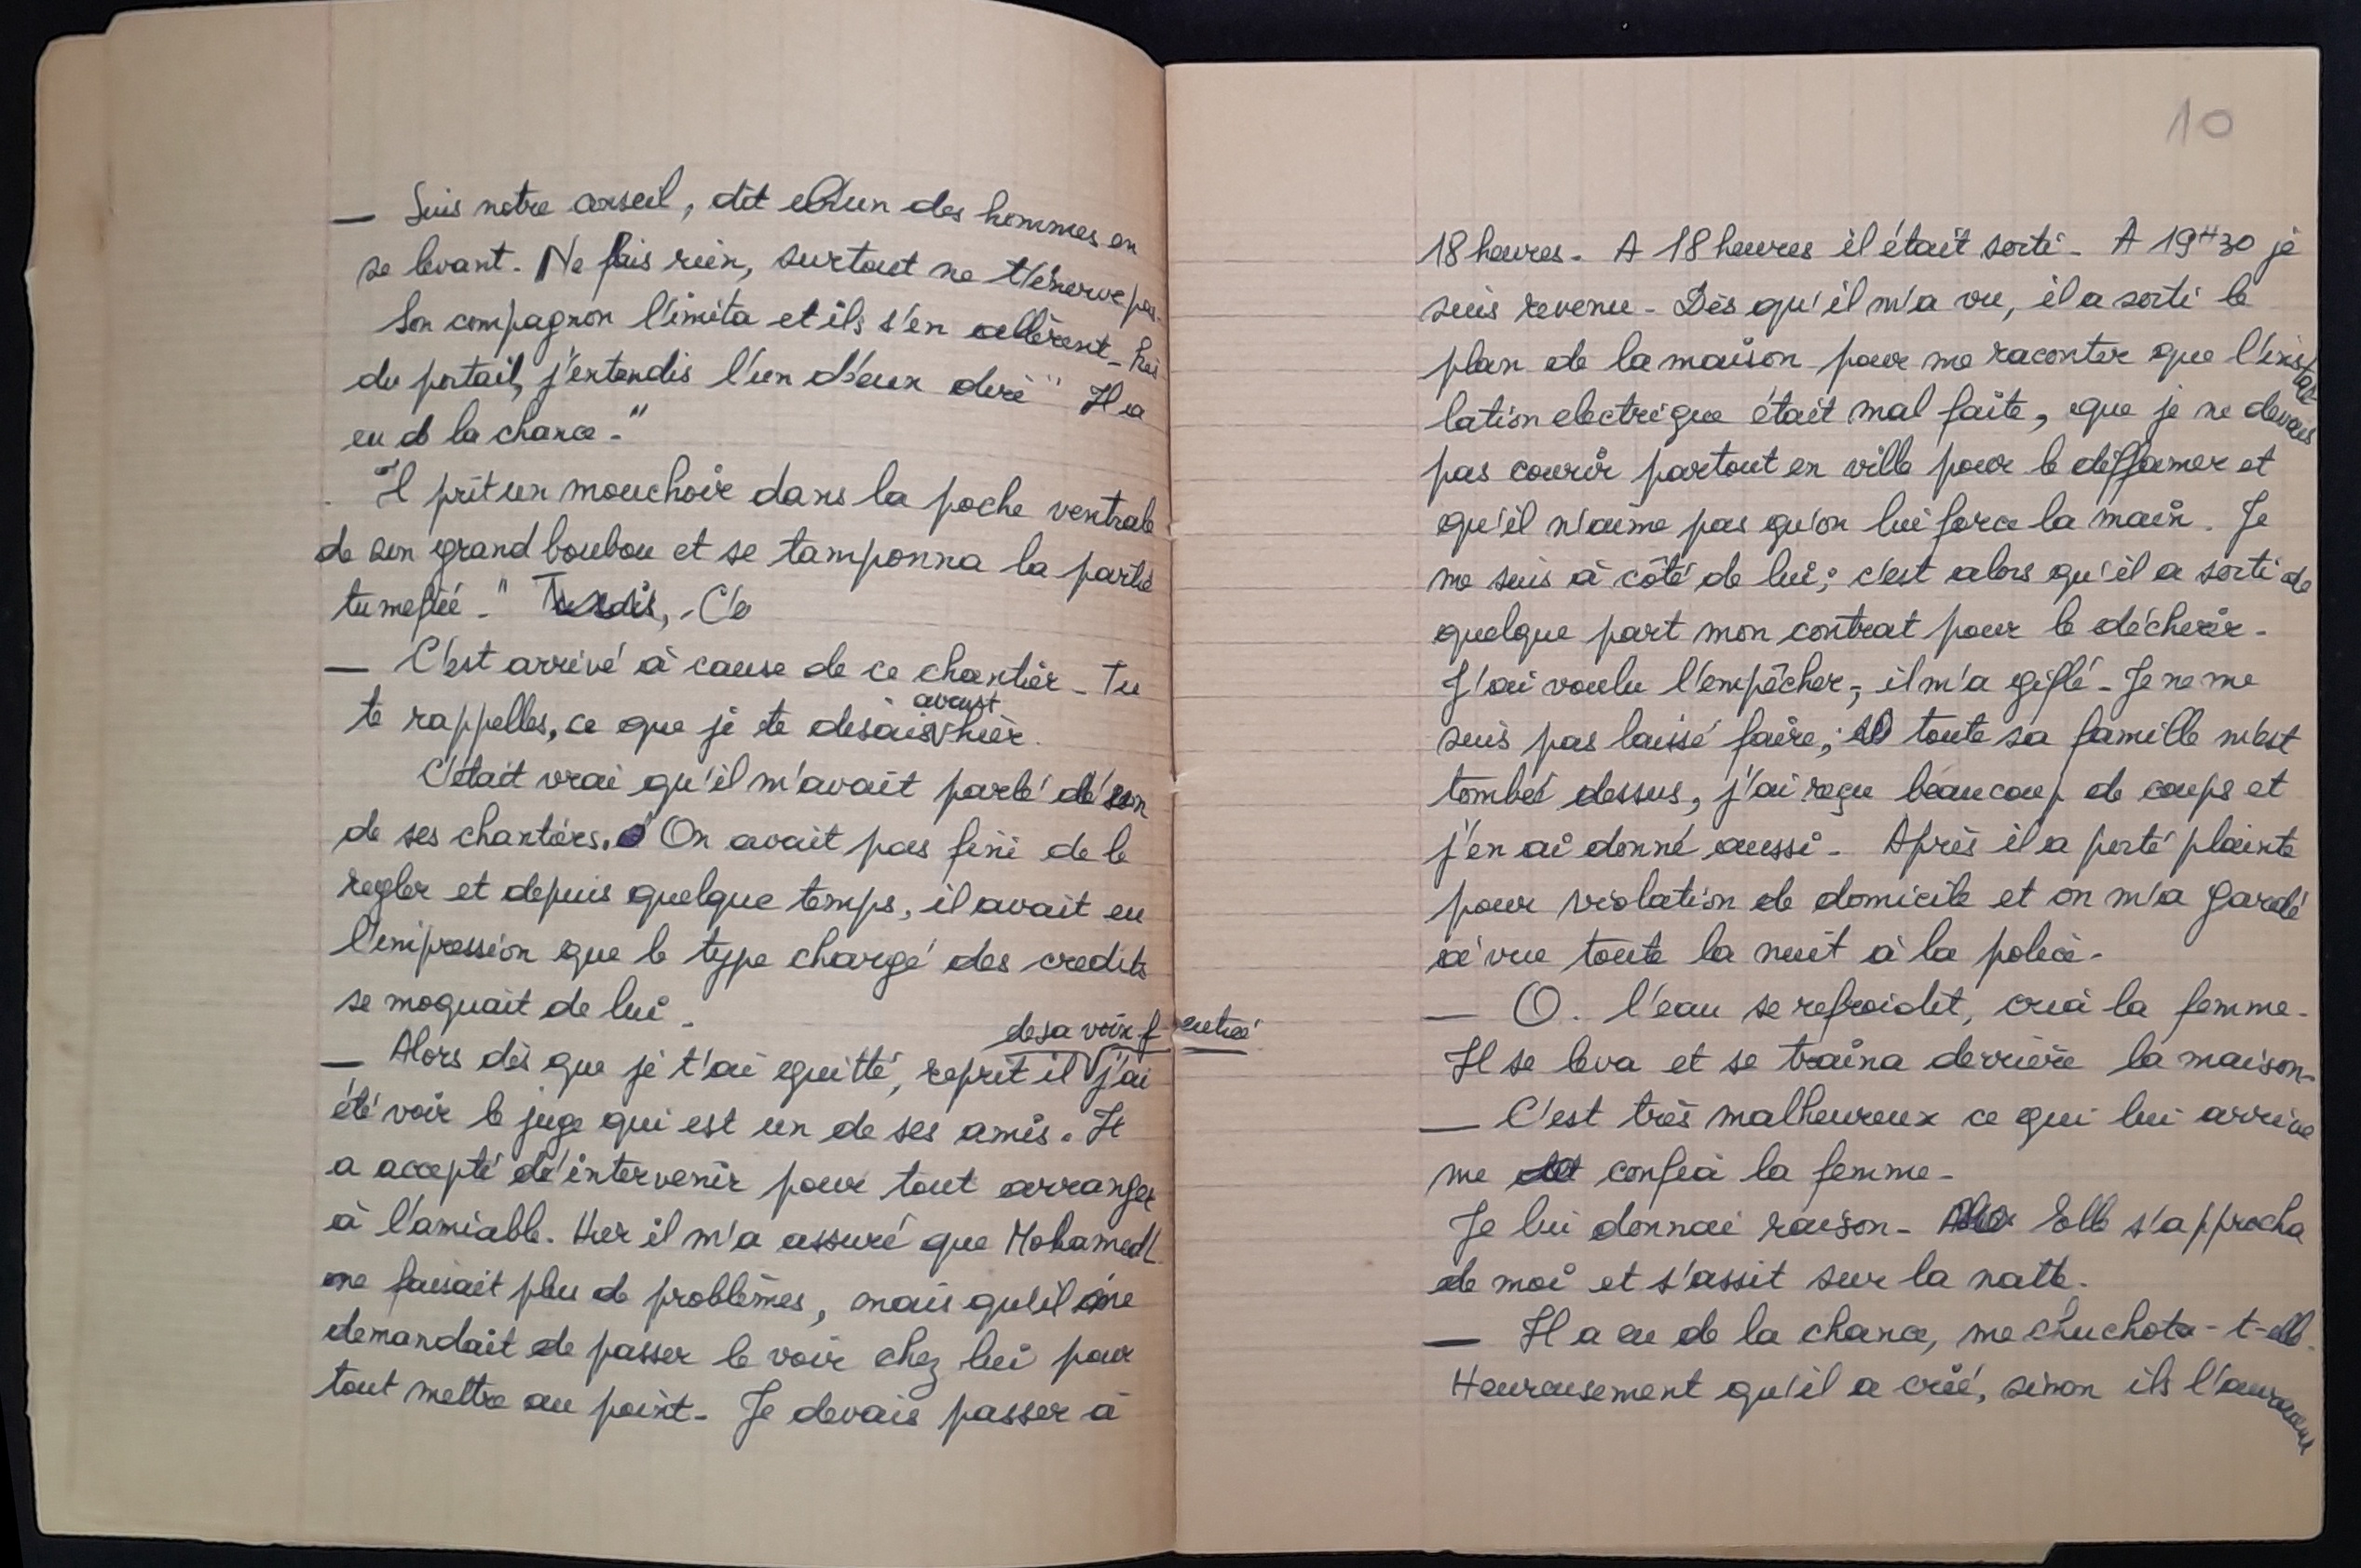 — Suis notre conseil, dit l'un des hommes en
se levant. Ne fais rien, surtout ne t'énerve pas.
Son compagnon l'imita et ils s'en allèrent. Près
du portail, j'entendis l'un d'eux dire " Il a
eu de la chance."
Il prit un mouchoir dans la poche ventrale
de son grand boubou et se tamponna la partie
tumefiée." Tu sais, C'e
— C'est arrivé à cause de ce chantier. Tu
te rappelles, ce que je te disais avant hier.
C'était vrai qu'il m'avait parlé d'un
de ses chantiers. On avait pas fini de le
regler et depuis quelque temps, il avait eu
l'impression que le type chargé des credits
se moquait de lui.
— Alors dès que je t'ai quitté, reprit il de sa voix flutée j'ai
été voir le juge qui est un de ses amis. Il
a accepté d'intervenir pour tout arranger
à l'amiable. Hier il m'a assuré que Mohamed
ne faisait plus de problèmes, mais qu'il me
demandait de passer le voir chez lui pour
tout mettre au point. Je devais passer à
10
18 heures. A 18 heures il était sorti. A 19H30 je
suis revenu. Dès qu'il m'a vu, il a sorti le
plan de la maison pour me raconter que l'instal-
lation electrique était mal faite, que je ne devais
pas courir partout en ville pour le diffamer et
qu'il n'aime pas qu'on lui force la main. Je
me suis à côté de lui; c'est alors qu'il a sorti de
quelque part mon contrat pour le déchirer.
J'ai voulu l'empêcher, il m'a giflé. Je ne me
suis pas laissé faire; toute sa famille m'est
tombée dessus, j'ai reçu beaucoup de coups et
j'en ai donné aussi. Après il a porté plainte
pour violation de domicile et on m'a gardé
à vue toute la nuit à la police.
— O. l'eau se refroidit, cria la femme.
Il se leva et se traîna derrière la maison.
— C'est très malheureux ce qui lui arrive
me confia la femme.
Je lui donnai raison. Elle s'approcha
de moi et s'assit sur la natte.
— Il a eu de la chance, me chuchota-t-elle.
Heureusement qu'il a crié, sinon ils l'auraient